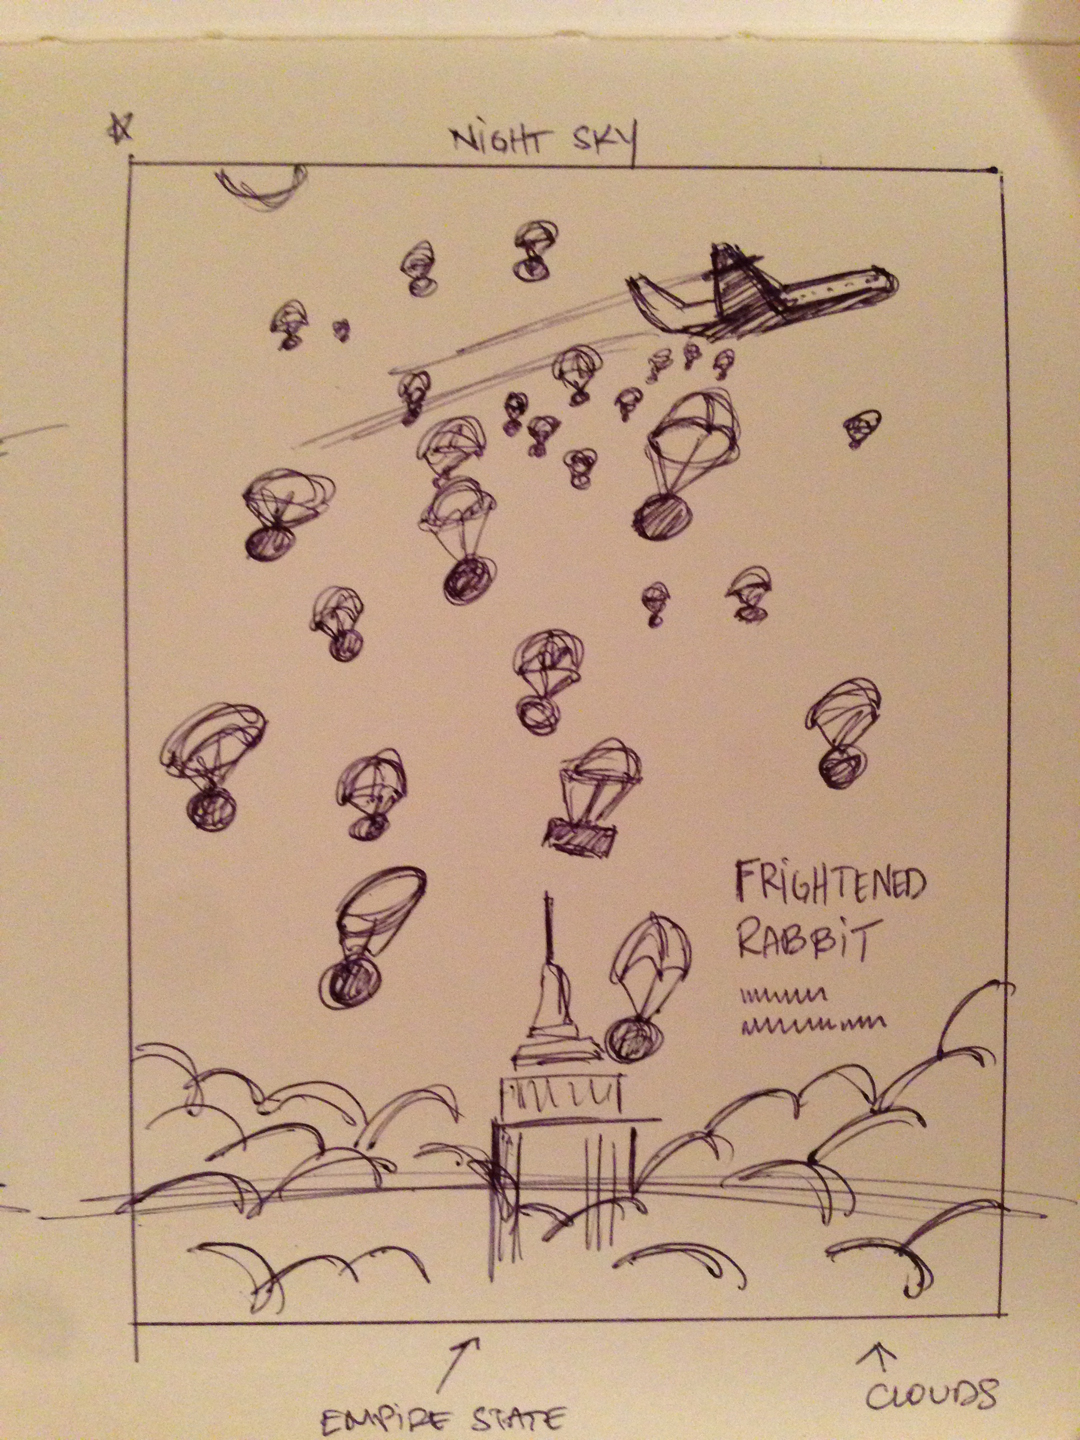 NIGHT SKY
FRIGHTENED
RABBIT
EMPIRE STATE
CLOUDS